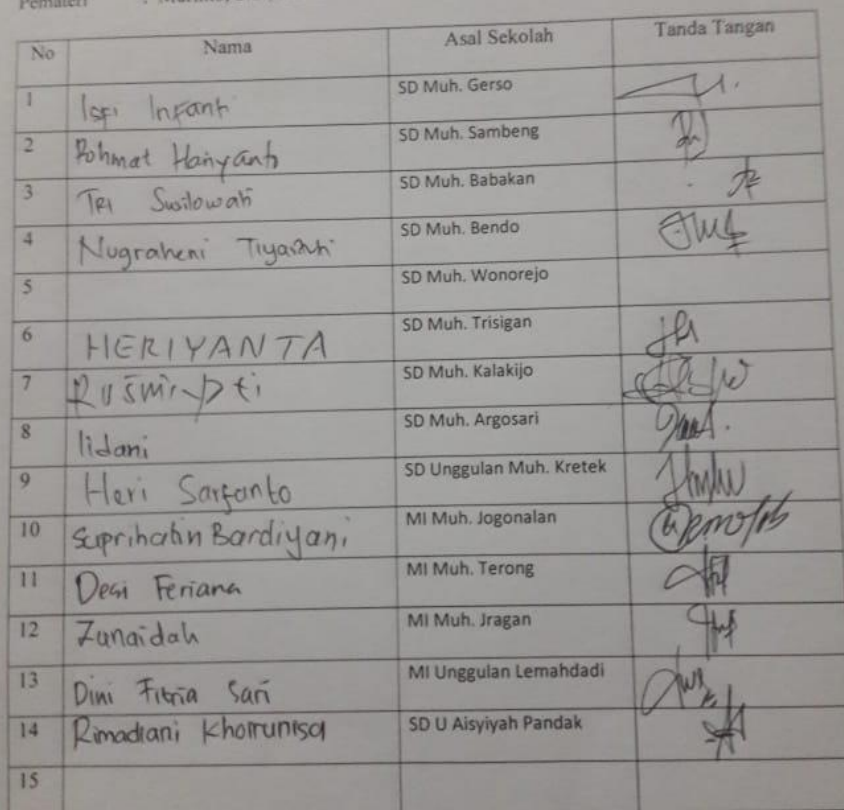 Pemateri :
No Nama Asal Sekolah Tanda Tangan
1 Isfi Infanti SD Muh. Gerso
2 Rohmat Hariyanto SD Muh. Sambeng
3 TRI Susilowati SD Muh. Babakan
4 Nugraheni SD Muh. Bendo
5 SD Muh. Wonorejo
6 HERIYANTA SD Muh. Trisigan
7 SD Muh. Kalakijo
8 Iidani SD Muh. Argosari
9 Heri SD Unggulan Muh. Kretek
10 Suprihatin Bardiyani, MI Muh. Jogonalan
11 Desi Feriana MI Muh. Terong
12 Zunaidah MI Muh. Jragan
13 Dini Fitria Sari MI Unggulan Lemahdadi
14 Rimadiani Khoirunisa SD U Aisyiyah Pandak
15